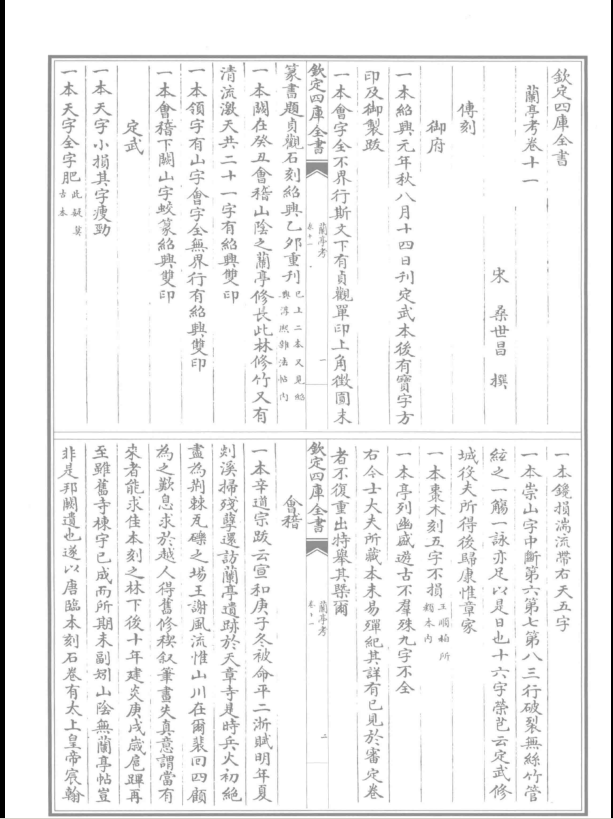 欽定四庫全書
蘭亭考卷十一
宋 桑世昌 撰
傳刻
御府
一本紹興元年秋八月十四日刊定武本後有寶字方
印及御製跋
一本會字全不界行斯文下有貞觀單印上角微圓末
欽定四庫全書
蘭亭考
卷十一
一
篆書題貞觀石刻紹興乙卯重刊已上二本又見紹
興淳熙雜法帖内
一本闕在癸丑會稽山陰之蘭亭修長此林修竹又有
清流激天共二十一字有紹興雙印
一本領字有山字會字全無界行有紹興雙印
一本會稽下闕山字蛟篆紹興雙印
定武
一本天字小損其字瘦勁
一本天字全字肥此疑莫
古本
一本鐫損湍流帶右天五字
一本崇山字中斷第六第七第八三行破裂無絲竹管
絃之一觴一詠亦足以是日也十六字榮芑云定武修
城役夫所得後歸康惟章家
一本棗木刻五字不損王順柏所
類本内
一本亭列幽盛遊古不羣殊九字不全
右今士大夫所藏本未易殫紀其詳有已見於審定卷
者不復重出特舉其槩爾
欽定四庫全書
蘭亭考
卷十一
二
會稽
一本辛道宗跋云宣和庚子冬被命平二浙賊明年夏
剡溪掃殘孽還訪蘭亭遺跡於天章寺是時兵火初絶
盡為荆棘瓦礫之場王謝風流惟山川在爾裴回四顧
為之歎息求於越人得舊修稧叙筆畫失真意謂當有
來者能求佳本刻之林下後十年建炎庚戌歲扈蹕再
至雖舊寺棟宇已成而所期未副矧山陰無蘭亭帖豈
非是邦闕遺也遂以唐臨本刻石卷有太上皇帝宸翰